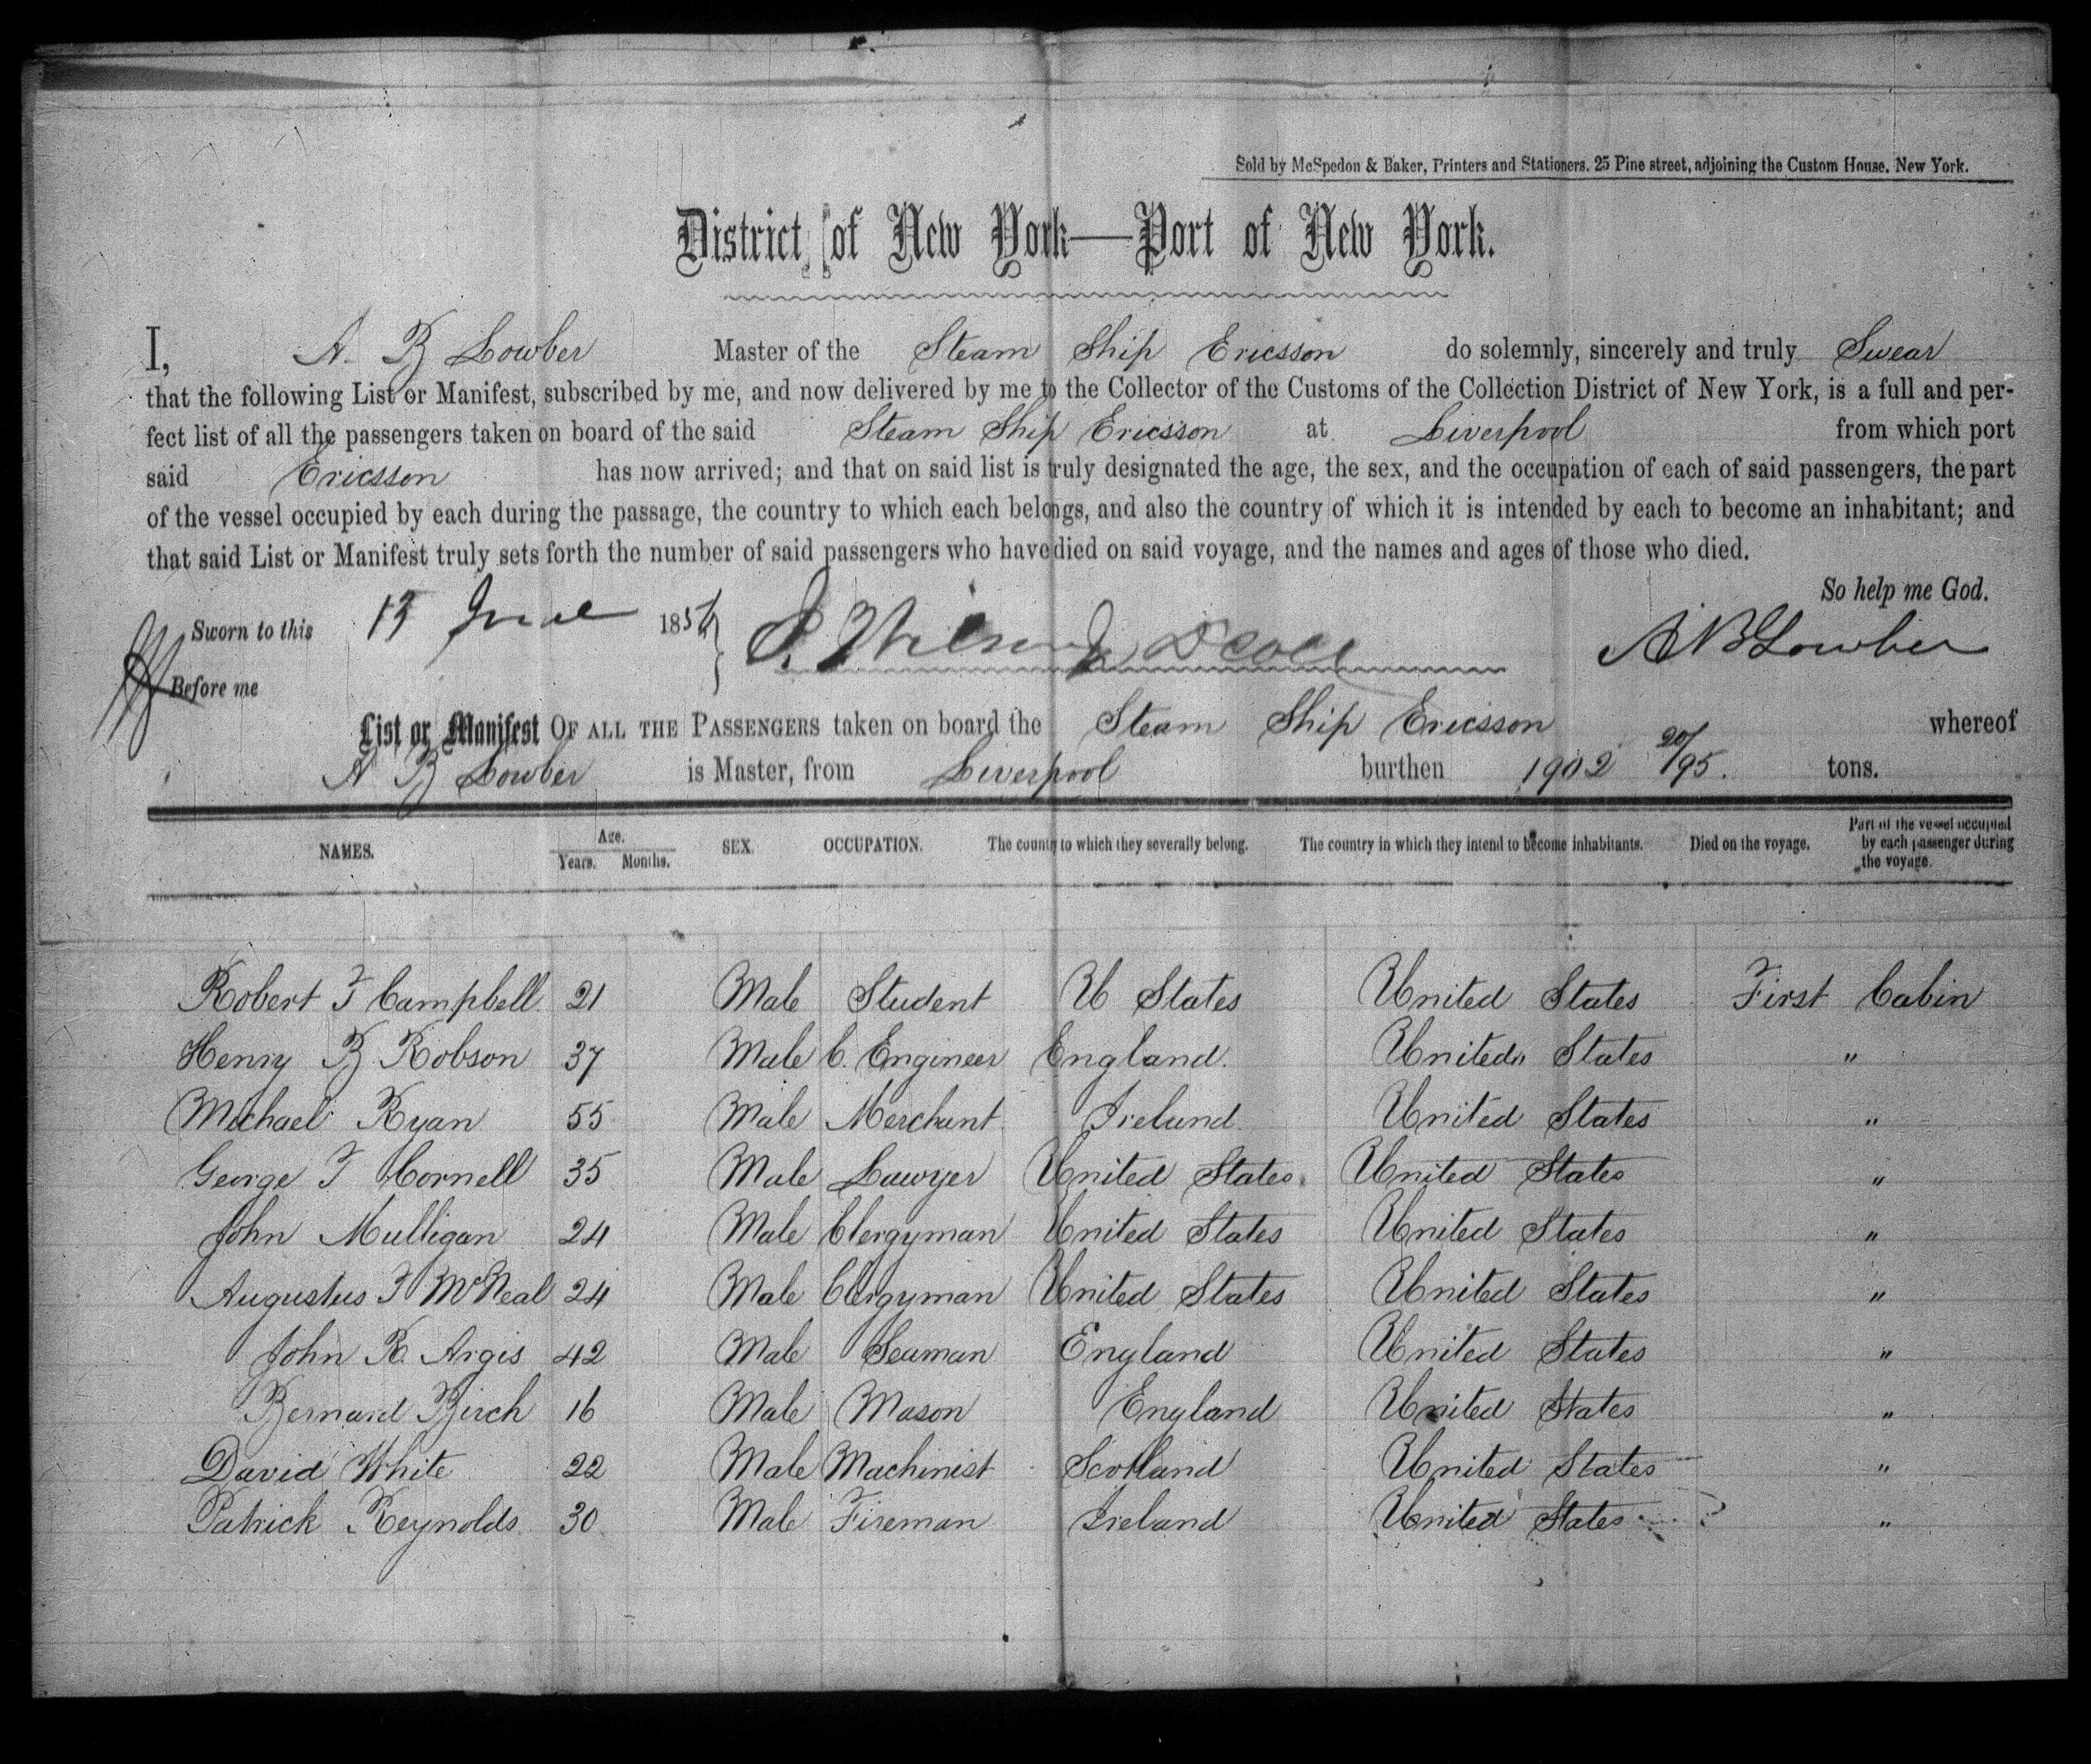 Sold by McSpedon & Baker, Printers and Stationers, 25 Pine street, adjoining the Custom House, New York.
District of New York—Port of New York.
I, A. B Lowber Master of the Steam Ship Ericsson do solemnly, sincerely and truly Swear
that the following List or Manifest, subscribed by me, and now delivered by me to the Collector of the Customs of the Collection District of New York, is a full and per-
fect list of all the passengers taken on board of the said Steam Ship Ericsson at Liverpool from which port
said Ericsson has now arrived; and that on said list is truly designated the age, the sex, and the occupation of each of said passengers, the part
of the vessel occupied by each during the passage, the country to which each belongs, and also the country of which it is intended by each to become an inhabitant; and
that said List or Manifest truly sets forth the number of said passengers who have died on said voyage, and the names and ages of those who died.
So help me God.
Sworn to this June 185 A B Lowber
Before me
List or Manifest OF ALL THE PASSENGERS taken on board the Steam Ship Ericsson whereof
A B Lowber is Master, from Liverpool burthen 1902 20/95. tons.
NAMES. Age. Years. Months. SEX. OCCUPATION. The county to which they severally belong. The country in which they intend to become inhabitants. Died on the voyage. Part of the vessel occupied by each passenger during the voyage.
Robert F Campbell. 21 Male Student U States United States First Cabin
Henry B Robson 37 Male C. Engineer England. United States "
Michael Ryan 55 Male Merchant Ireland United States "
George F Cornell 35 Male Lawyer United States United States "
John Mulligan 24 Male Clergyman United States United States "
Augustus F McNeal 24 Male Clergyman United States United States "
John R. Argis 42 Male Seaman England United States "
Bernard Birch 16 Male Mason England United States "
David White 22 Male Machinist Scotland United States "
Patrick Reynolds 30 Male Fireman Ireland United States "